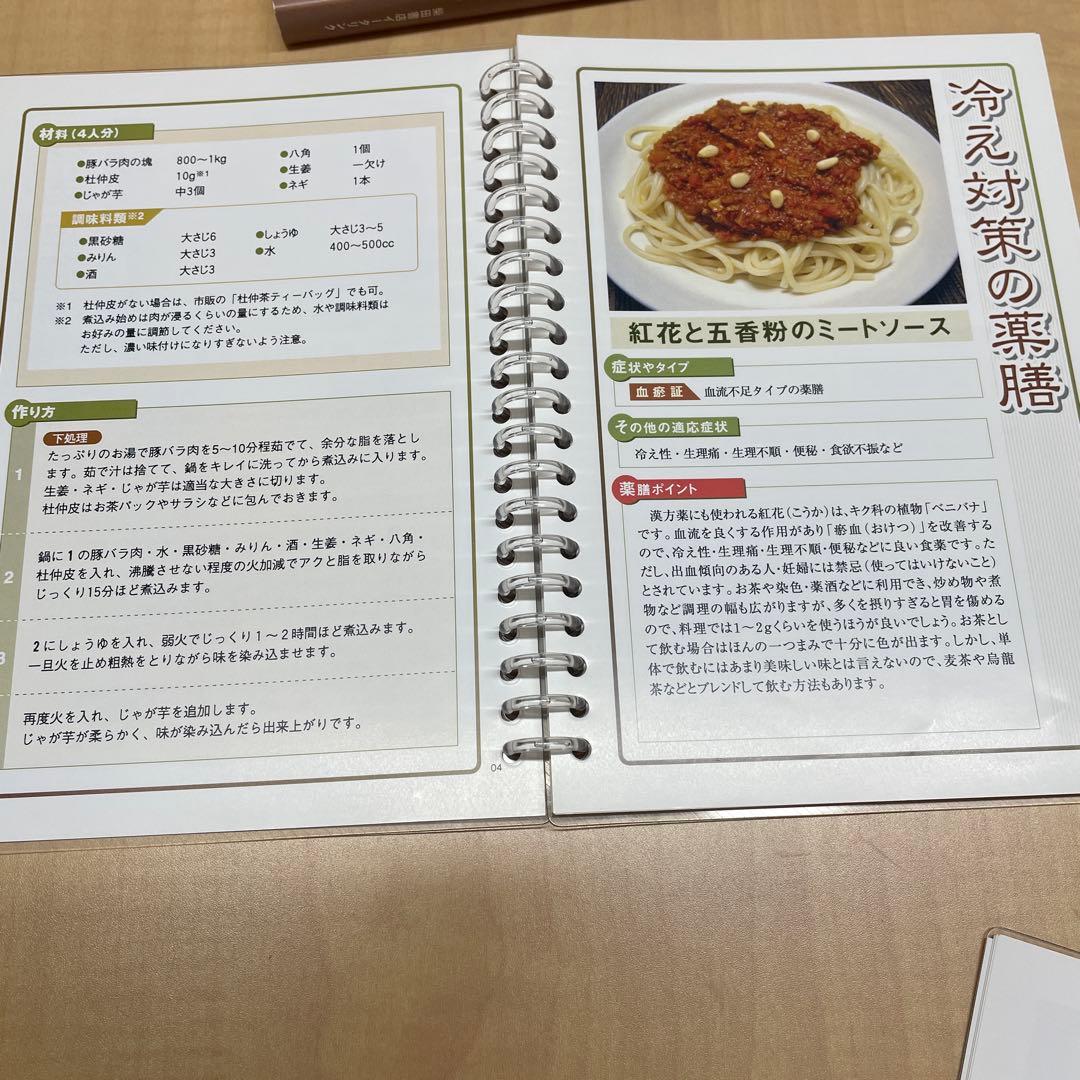 柴田書店イータリンク
材料(4人分)
●豚バラ肉の塊 800〜1kg
●杜仲皮 10g※1
●じゃが芋 中3個
●八角 1個
●生姜 一欠け
●ネギ 1本
調味料類※2
●黒砂糖 大さじ6
●みりん 大さじ3
●酒 大さじ3
●しょうゆ 大さじ3〜5
●水 400〜500cc
※1 杜仲皮がない場合は、市販の「杜仲茶ティーバッグ」でも可。
※2 煮込み始めは肉が浸るくらいの量にするため、水や調味料類は
お好みの量に調節してください。
ただし、濃い味付けになりすぎないよう注意。
作り方
下処理
1
たっぷりのお湯で豚バラ肉を5〜10分程茹でて、余分な脂を落とし
ます。茹で汁は捨てて、鍋をキレイに洗ってから煮込みに入ります。
生姜・ネギ・じゃが芋は適当な大きさに切ります。
杜仲皮はお茶パックやサラシなどに包んでおきます。
2
鍋に1の豚バラ肉・水・黒砂糖・みりん・酒・生姜・ネギ・八角・
杜仲皮を入れ、沸騰させない程度の火加減でアクと脂を取りながら
じっくり15分ほど煮込みます。
3
2にしょうゆを入れ、弱火でじっくり1〜2時間ほど煮込みます。
一旦火を止め粗熱をとりながら味を染み込ませます。
再度火を入れ、じゃが芋を追加します。
じゃが芋が柔らかく、味が染み込んだら出来上がりです。
04
冷え対策の薬膳
紅花と五香粉のミートソース
症状やタイプ
血瘀証 血流不足タイプの薬膳
その他の適応症状
冷え性・生理痛・生理不順・便秘・食欲不振など
薬膳ポイント
漢方薬にも使われる紅花(こうか)は、キク科の植物「ベニバナ」
です。血流を良くする作用があり「瘀血(おけつ)」を改善する
ので、冷え性・生理痛・生理不順・便秘などに良い食薬です。た
だし、出血傾向のある人・妊婦には禁忌(使ってはいけないこと)
とされています。お茶や染色・薬酒などに利用でき、炒め物や煮
物など調理の幅も広がりますが、多くを摂りすぎると胃を傷める
ので、料理では1〜2gくらいを使うほうが良いでしょう。お茶とし
て飲む場合はほんの一つまみで十分に色が出ます。しかし、単
体で飲むにはあまり美味しい味とは言えないので、麦茶や烏龍
茶などとブレンドして飲む方法もあります。